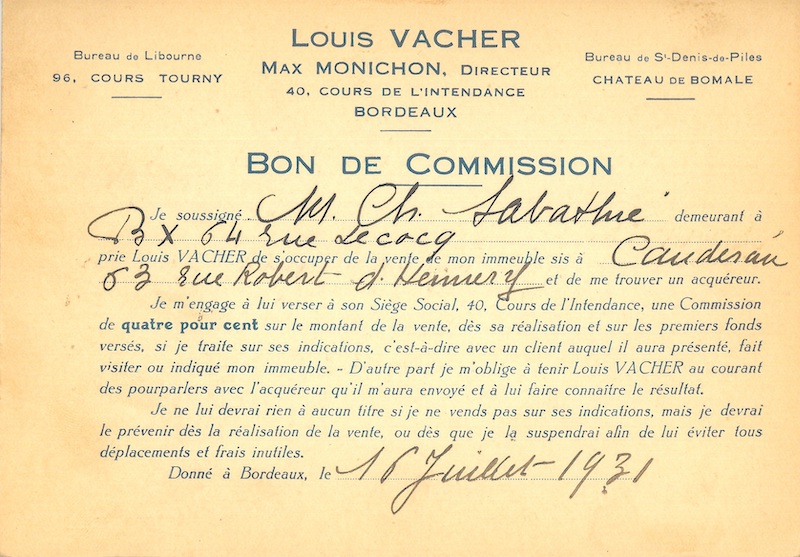 LOUIS VACHER
MAX MONICHON, DIRECTEUR
40, COURS DE L'INTENDANCE
BORDEAUX
Bureau de Libourne
96, COURS TOURNY
Bureau de St-Denis-de-Piles
CHATEAU DE BOMALE
BON DE COMMISSION
Je soussigné M. Ch. Sabathié demeurant à
Bx 64 rue Lecocq
prie Louis VACHER de s'occuper de la vente de mon immeuble sis à Caudéran
63 rue Robert d. Hennery et de me trouver un acquéreur.
Je m'engage à lui verser à son Siège Social, 40, Cours de l'Intendance, une Commission
de quatre pour cent sur le montant de la vente, dès sa réalisation et sur les premiers fonds
versés, si je traite sur ses indications, c'est-à-dire avec un client auquel il aura présenté, fait
visiter ou indiqué mon immeuble. - D'autre part je m'oblige à tenir Louis VACHER au courant
des pourparlers avec l'acquéreur qu'il m'aura envoyé et à lui faire connaître le résultat.
Je ne lui devrai rien à aucun titre si je ne vends pas sur ses indications, mais je devrai
le prévenir dès la réalisation de la vente, ou dès que je la suspendrai afin de lui éviter tous
déplacements et frais inutiles.
Donné à Bordeaux, le 16 Juillet 1931